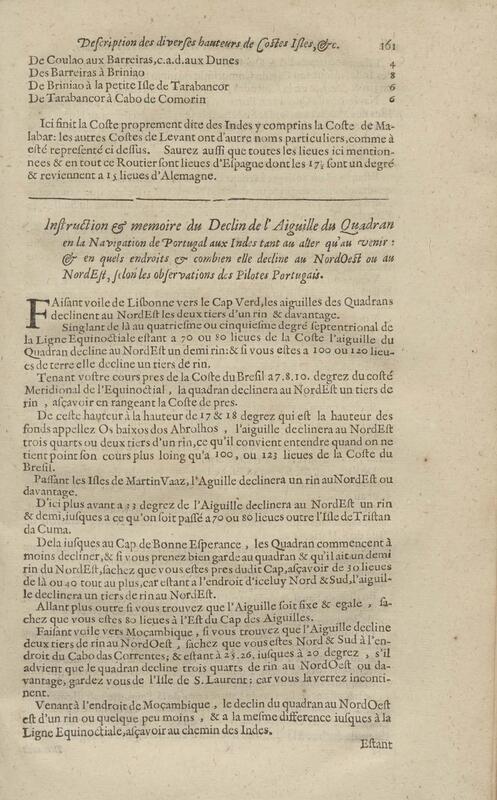 Description des diverses hauteurs de Costes Isles, &c. 161
De Coulao aux Barreiras, c.a.d. aux Dunes 4
Des Barreiras à Briniao 8
De Briniao à la petite Isle de Tarabancor 6
De Tarabancor à Cabo de Comorin 6
Ici finit la Coste proprement dite des Indes y comprins la Coste de Ma-
labar: les autres Costes de Levant ont d'autre noms particuliers, comme à
esté representé ci dessus. Saurez aussi que toutes les lieues ici mention-
nees & en tout ce Routier sont lieues d'Espagne dont les 17½ sont un degré
& reviennent a 15 lieues d'Alemagne.
Instruction & memoire du Declin de l'Aiguille du Quadran
en la Navigation de Portugal aux Indes tant au aller qu'au venir:
& en quels endroits & combien elle decline au NordOest ou au
NordEst, selon les observations des Pilotes Portugais.
FAisant voile de Lisbonne vers le Cap Verd, les aiguilles des Quadrans
declinent au NordEst les deux tiers d'un rin & davantage.
Singlant de là au quatriesme ou cinquiesme degré septentrional de
la Ligne Equinoctiale estant a 70 ou 80 lieues de la Coste l'aiguille du
Quadran decline au NordEst un demi rin: & si vous estes a 100 ou 120 lieu-
es de terre elle decline un tiers de rin.
Tenant vostre cours pres de la Coste du Bresil a 7. 8. 10. degrez du costé
Meridional de l'Equinoctial, la quadran declinera au NordEst un tiers de
rin, asçavoir en rangeant la Coste de pres.
De ceste hauteur à la hauteur de 17 & 18 degrez qui est la hauteur des
fonds appellez Os baixos dos Abrolhos, l'aiguille declinera au NordEst
trois quarts ou deux tiers d'un rin, ce qu'il convient entendre quand on ne
tient point son cours plus loing qu'a 100, ou 123 lieues de la Coste du
Bresil.
Passant les Isles de Martin Vaaz, l'Aguille declinera un rin au NordEst ou
davantage.
D'ici plus avant a 33 degrez de l'Aiguille declinera au NordEst un rin
& demi, iusques a ce qu'on soit passé a 70 ou 80 lieues outre l'Isle de Tristan
da Cuma.
De la iusques au Cap de Bonne Esperance, les Quadran commencent à
moins decliner, & si vous prenez bien garde au quadran & qu'il ait un demi
rin du NordEst, sachez que vous estes pres dudit Cap, asçavoir de 30 lieues
de là ou 40 tout au plus, car estant a l'endroit d'iceluy Nord & Sud, l'aiguil-
le declinera un tiers de rin au NorEst.
Allant plus outre si vous trouvez que l'Aiguille soit fixe & egale, sa-
chez que vous estes 80 lieues à l'Est du Cap des Aiguilles.
Faisant voile vers Moçambique, si vous trouvez que l'Aiguille decline
deux tiers de rin au NordOest, sachez que vous estes Nord & Sud à l'en-
droit du Cabo das Correntes; & estant à 25. 26. iusques à 20 degrez, s'il
advient que le quadran decline trois quarts de rin au NordOest ou da-
vantage, gardez vous de l'Isle de S. Laurent; car vous la verrez inconti-
nent.
Venant à l'endroit de Moçambique, le declin du quadran au NordOest
est d'un rin ou quelque peu moins, & a la mesme difference iusques à la
Ligne Equinoctiale, asçavoir au chemin des Indes.
Estant